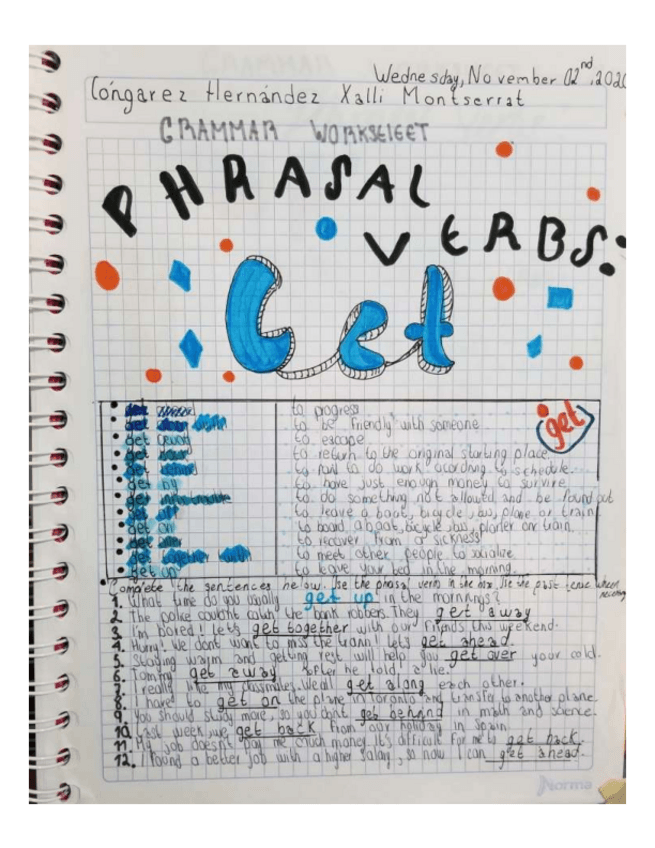 Wednesday, November 02nd, 2020
Cóngarez Hernández Xalli Montserrat
GRAMMAR WORKSHEET
PHRASAL
VERBS:
Get
get
to progress
to be friendly with someone
to escape
to return to the original starting place
to do work acording to schedule.
to have just enough money to survive
to do something not allowed and be found out
to leave a boat, bicycle, bus, plane or train
to board a boat, bicycle, bus, or train
to recover from a sickness
to meet other people to socialize
get up to leave your bed in the morning.
Complete the sentences below. Use the phrasal verb in the box. Use the past tense when
1. What time do you usually get up in the mornings?
2. The police couldnt catch the bank robbers. They get away
3. I'm bored! Let's get together with our friends this weekend.
4. Hurry! We dont want to miss the train! Let's get ahead.
5. Staying warm and getting rest will help you get over your cold.
6. Tommy get away after he told a lie.
7. I really like my classmates. We all get along each other.
8. I have to get on the plane in Toronto and transfer to another plane
9. You should study more, so you dont get behand in math and science.
10. Last week, we get back from our holiday in Spain.
11. My job doesn't pay me much money. It's difficult for me to get back.
12. I found a better job with a higher salary, so now I can get ahead.
Norma